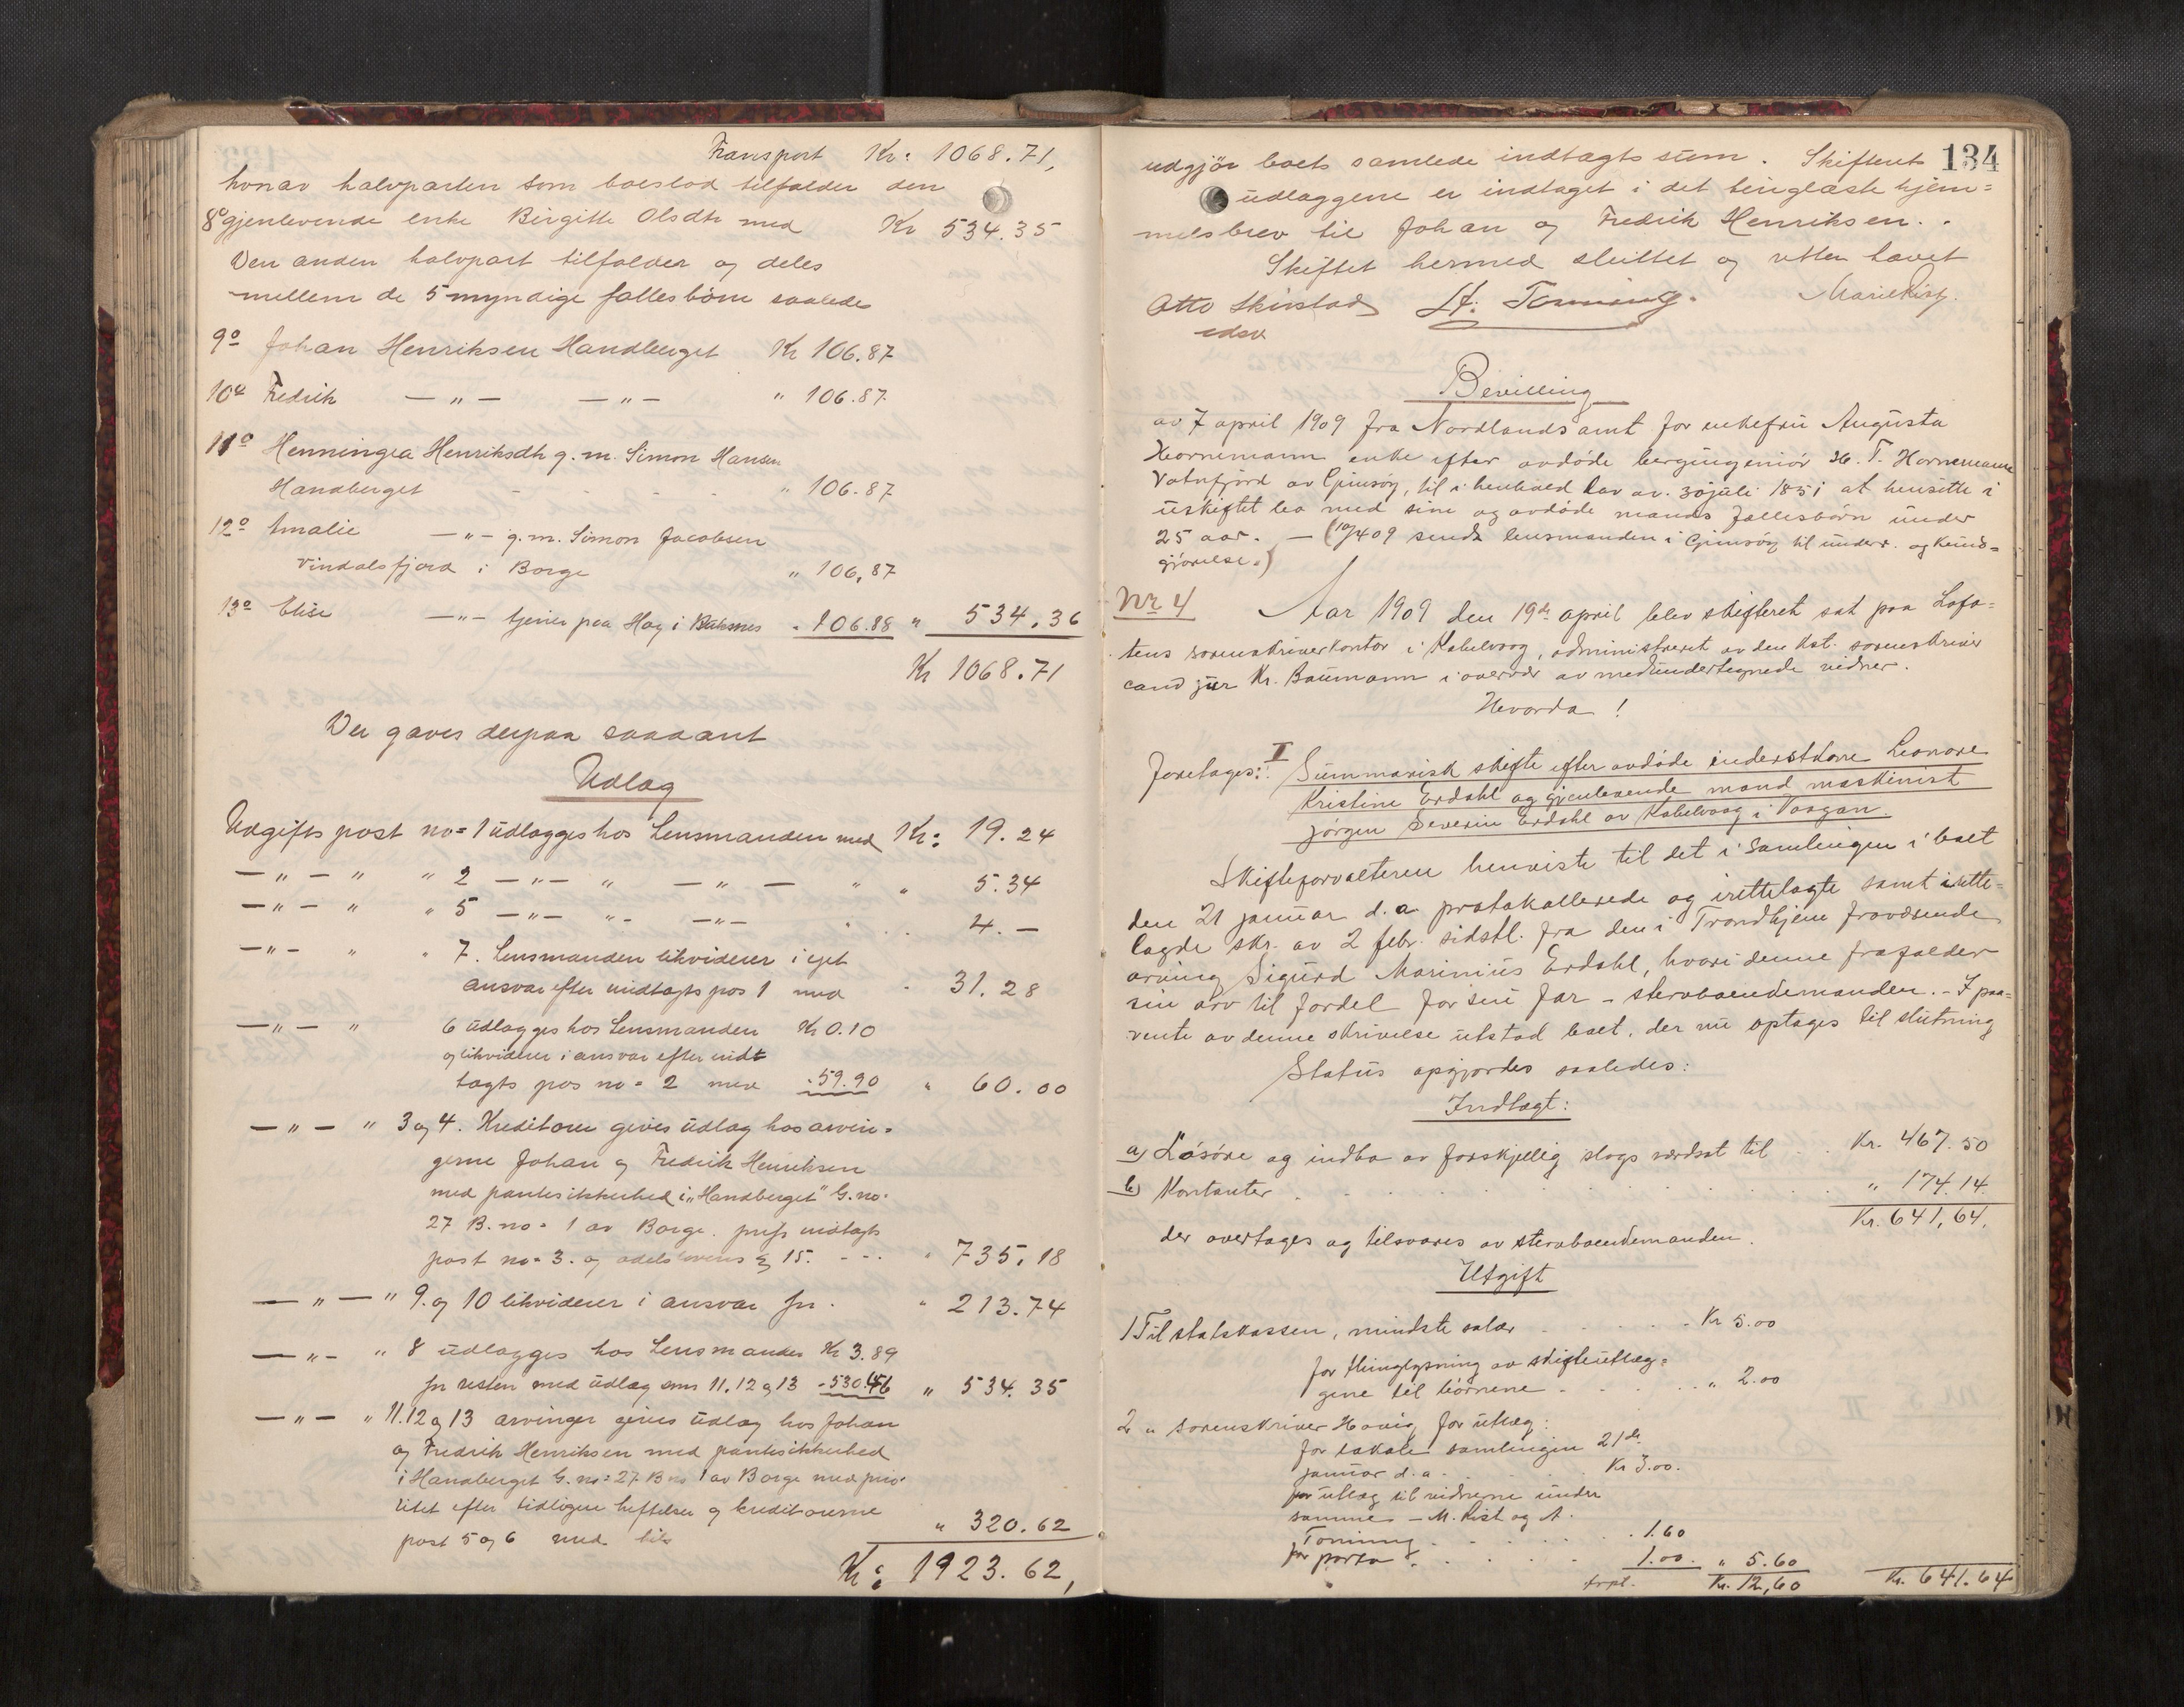 Transport Kr: 1068.71,
hvorav halvparten som boeslod tilfalder den
8° gjenlevende enke Birgitte Olsdtr med Kr 534.35
Den anden halvpart tilfalder og deles
mellem de 5 myndige fællesbörn saaledes
9° Johan Henriksen Handberget Kr 106.87
10° Fredrik —"— —"— " 106.87
11° Henningea Henriksdtr g.m. Simon Hansen
Handberget - - - - " 106.87
12° Amalie —"— g.m. Simon Jacobsen
Vindalsfjord i Borge " 106,87
13° Elise —"— tjener paa Hag i Buksnes - 106.88 " 534.36
Kr 1068.71
Der gaves derpaa saadant
Udlæg
Udgifts post no=1 udlægges hos Lensmanden med Kr: 19.24
—"— " " 2 —"— " —"— " " 5.34
—"— " " 5 —"— "- —"— . . . 4.—
—"— " " 7. Lensmanden likviderer i eget
ansvar efter indtægts pos 1 med - 31.28
—"— " 6 udlægges hos Lensmanden Kr 0.10
og likviderer i ansvar efter indt
tægts pos no= 2 med -59.90 " 60.00
—"— " 3 og 4. Kreditorer gives udlæg hos arvin=
gerne Johan og Fredrik Henriksen
med pantesikkerhed i „Handberget" G.no.
27 B.no= 1 av Borge. indtægts
post no= 3. og odelslovens § 15. - - - " 735.18
—"— " 9. og 10 likviderer i ansvar for . " 213.74
—"— " 8 udlægges hos Lensmanden Kr 3.89
for resten med udlæg som 11.12 og 13 -530.46 " 534.35
—"— " 11.12 og 13 arvinger gives udlæg hos Johan
og Fredrik Henriksen med pantesikkerhed
i Handberget G.no= 27 B no 1 av Borge med prio-
ritet efter tidligere heftelser og kreditorerne
post 5 og 6 med " 320.62
Kr: 1923.62,
134
udgjör boets samlede indtægts sum. Skifterets
udlæggene er indtaget i det tinglæste hjem=
melsbrev til Johan og Fredrik Henriksen..
Skiftet hermed sluttet og retten hævet
Otto Skirstad A. Tönning. Marie Rist.
edsv
Bevilling
av 7 april 1909 fra Nordlands amt for enkefru Augusta
Hornemann enke efter avdöde bergingeniör H. T. Hornemann
Vatnfjord av Gimsöy, til i henhold lov av. 30 juli 1851 at hensitte i
uskiftet bo med sine og avdöde mands fællesbörn under
25 aar. — (10/4 09 sendt lensmanden i Gimsöy til underr. og kund=
gjörelse.)
Nr 4
Aar 1909 den 19de april blev skifteret sat paa Lofo=
tens sorenskriverkontor i Kabelvaag, administreret av den kst. sorenskriver
cand jur Kr. Baumann i overvær av medundertegnede vidner.
Hvorda!
Foretages: I Summarisk skifte efter avdöde inderstkone Leonore
Kristine Erdahl og gjenlevende mand maskinist
Jörgen Severin Erdahl av Kabelvaag i Vaagan.
Skifteforvalteren henviste til det i Samlingen i boet
den 21 januar d.a protokollerede og irettelagte samt irette=
lagde skr. av 2 febr. sidstl. fra den i Trondhjem fraværende
arving Sigurd Marinius Erdahl, hvori denne frafalder
sin arv til fordel for sin far – stervboendemanden. – I paa=
vente av denne skrivelse utstod boet, der nu optages til slutning
Status opgjordes saaledes:
Indtægt:
a) Lösöre og indbo av forskjellig slags værdsat til . . Kr. 467.50
b) Kontanter . . . . . . . . " 174.14
Kr. 641,64.
der overtages og tilsvares av stervboendemanden.
Utgift
1 Til statskassen, mindste salær . . . . . - Kr 5.00
for thinglysning av skifteutlæg=
gene til börnene - . . . . . " 2.00
2 " sorenskriver Havig for utlæg:
for lokale samlingen 21de
januar d.a. . . . . . Kr 3.00.
for utlæg til vidnerne under
samme — M. Rist og A.
Tönning . . . . . . 1.60
for porto . . . . . 1.00. " 5.60
trpt. Kr. 12,60 Kr. 641.64